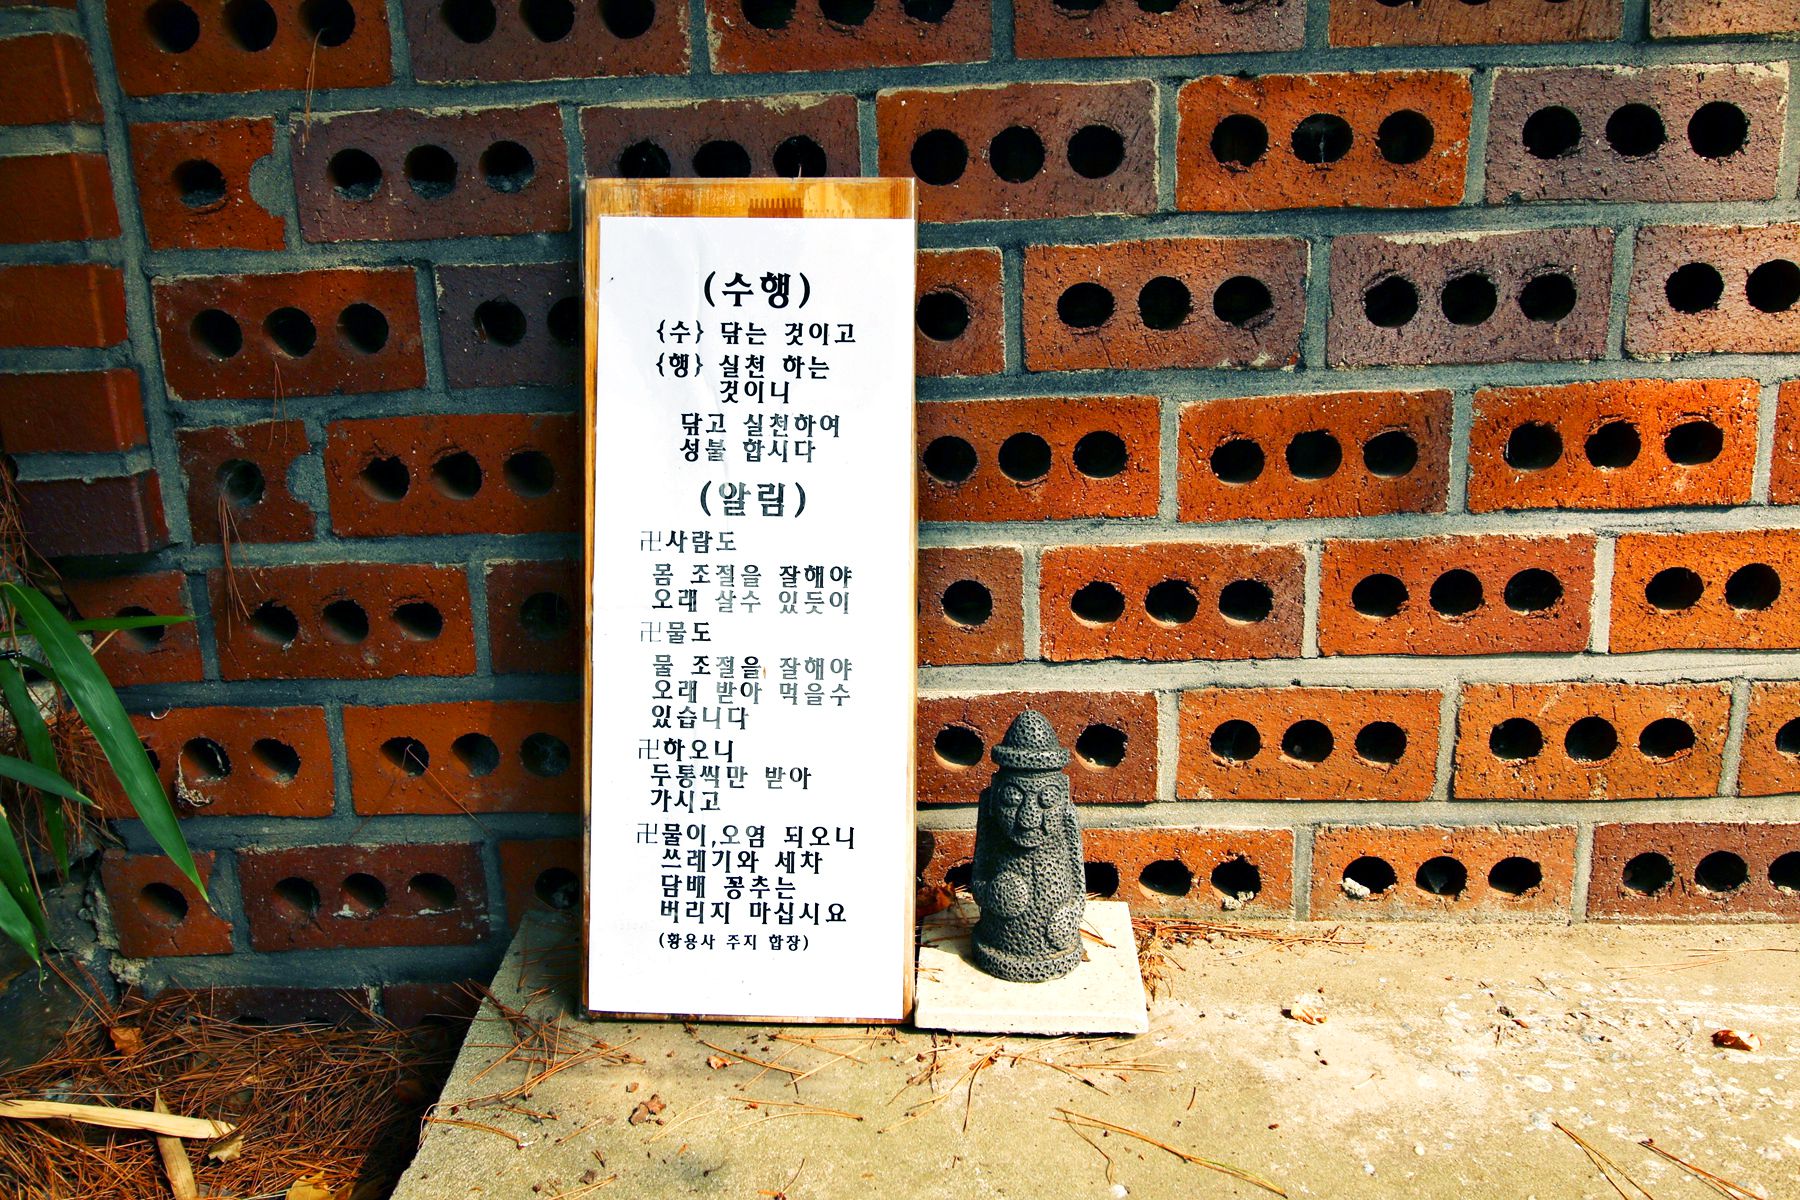 (수행)
{수} 닦는 것이고
{행} 실천 하는
것이니
닦고 실천하여
성불 합시다
(알림)
卍사람도
몸 조절을 잘해야
오래 살수 있듯이
卍물도
물 조절을 잘해야
오래 받아 먹을수
있습니다
卍하오니
두통씩만 받아
가시고
卍물이,오염 되오니
쓰레기와 세차
담배 꽁추는
버리지 마십시요
(황용사 주지 합장)